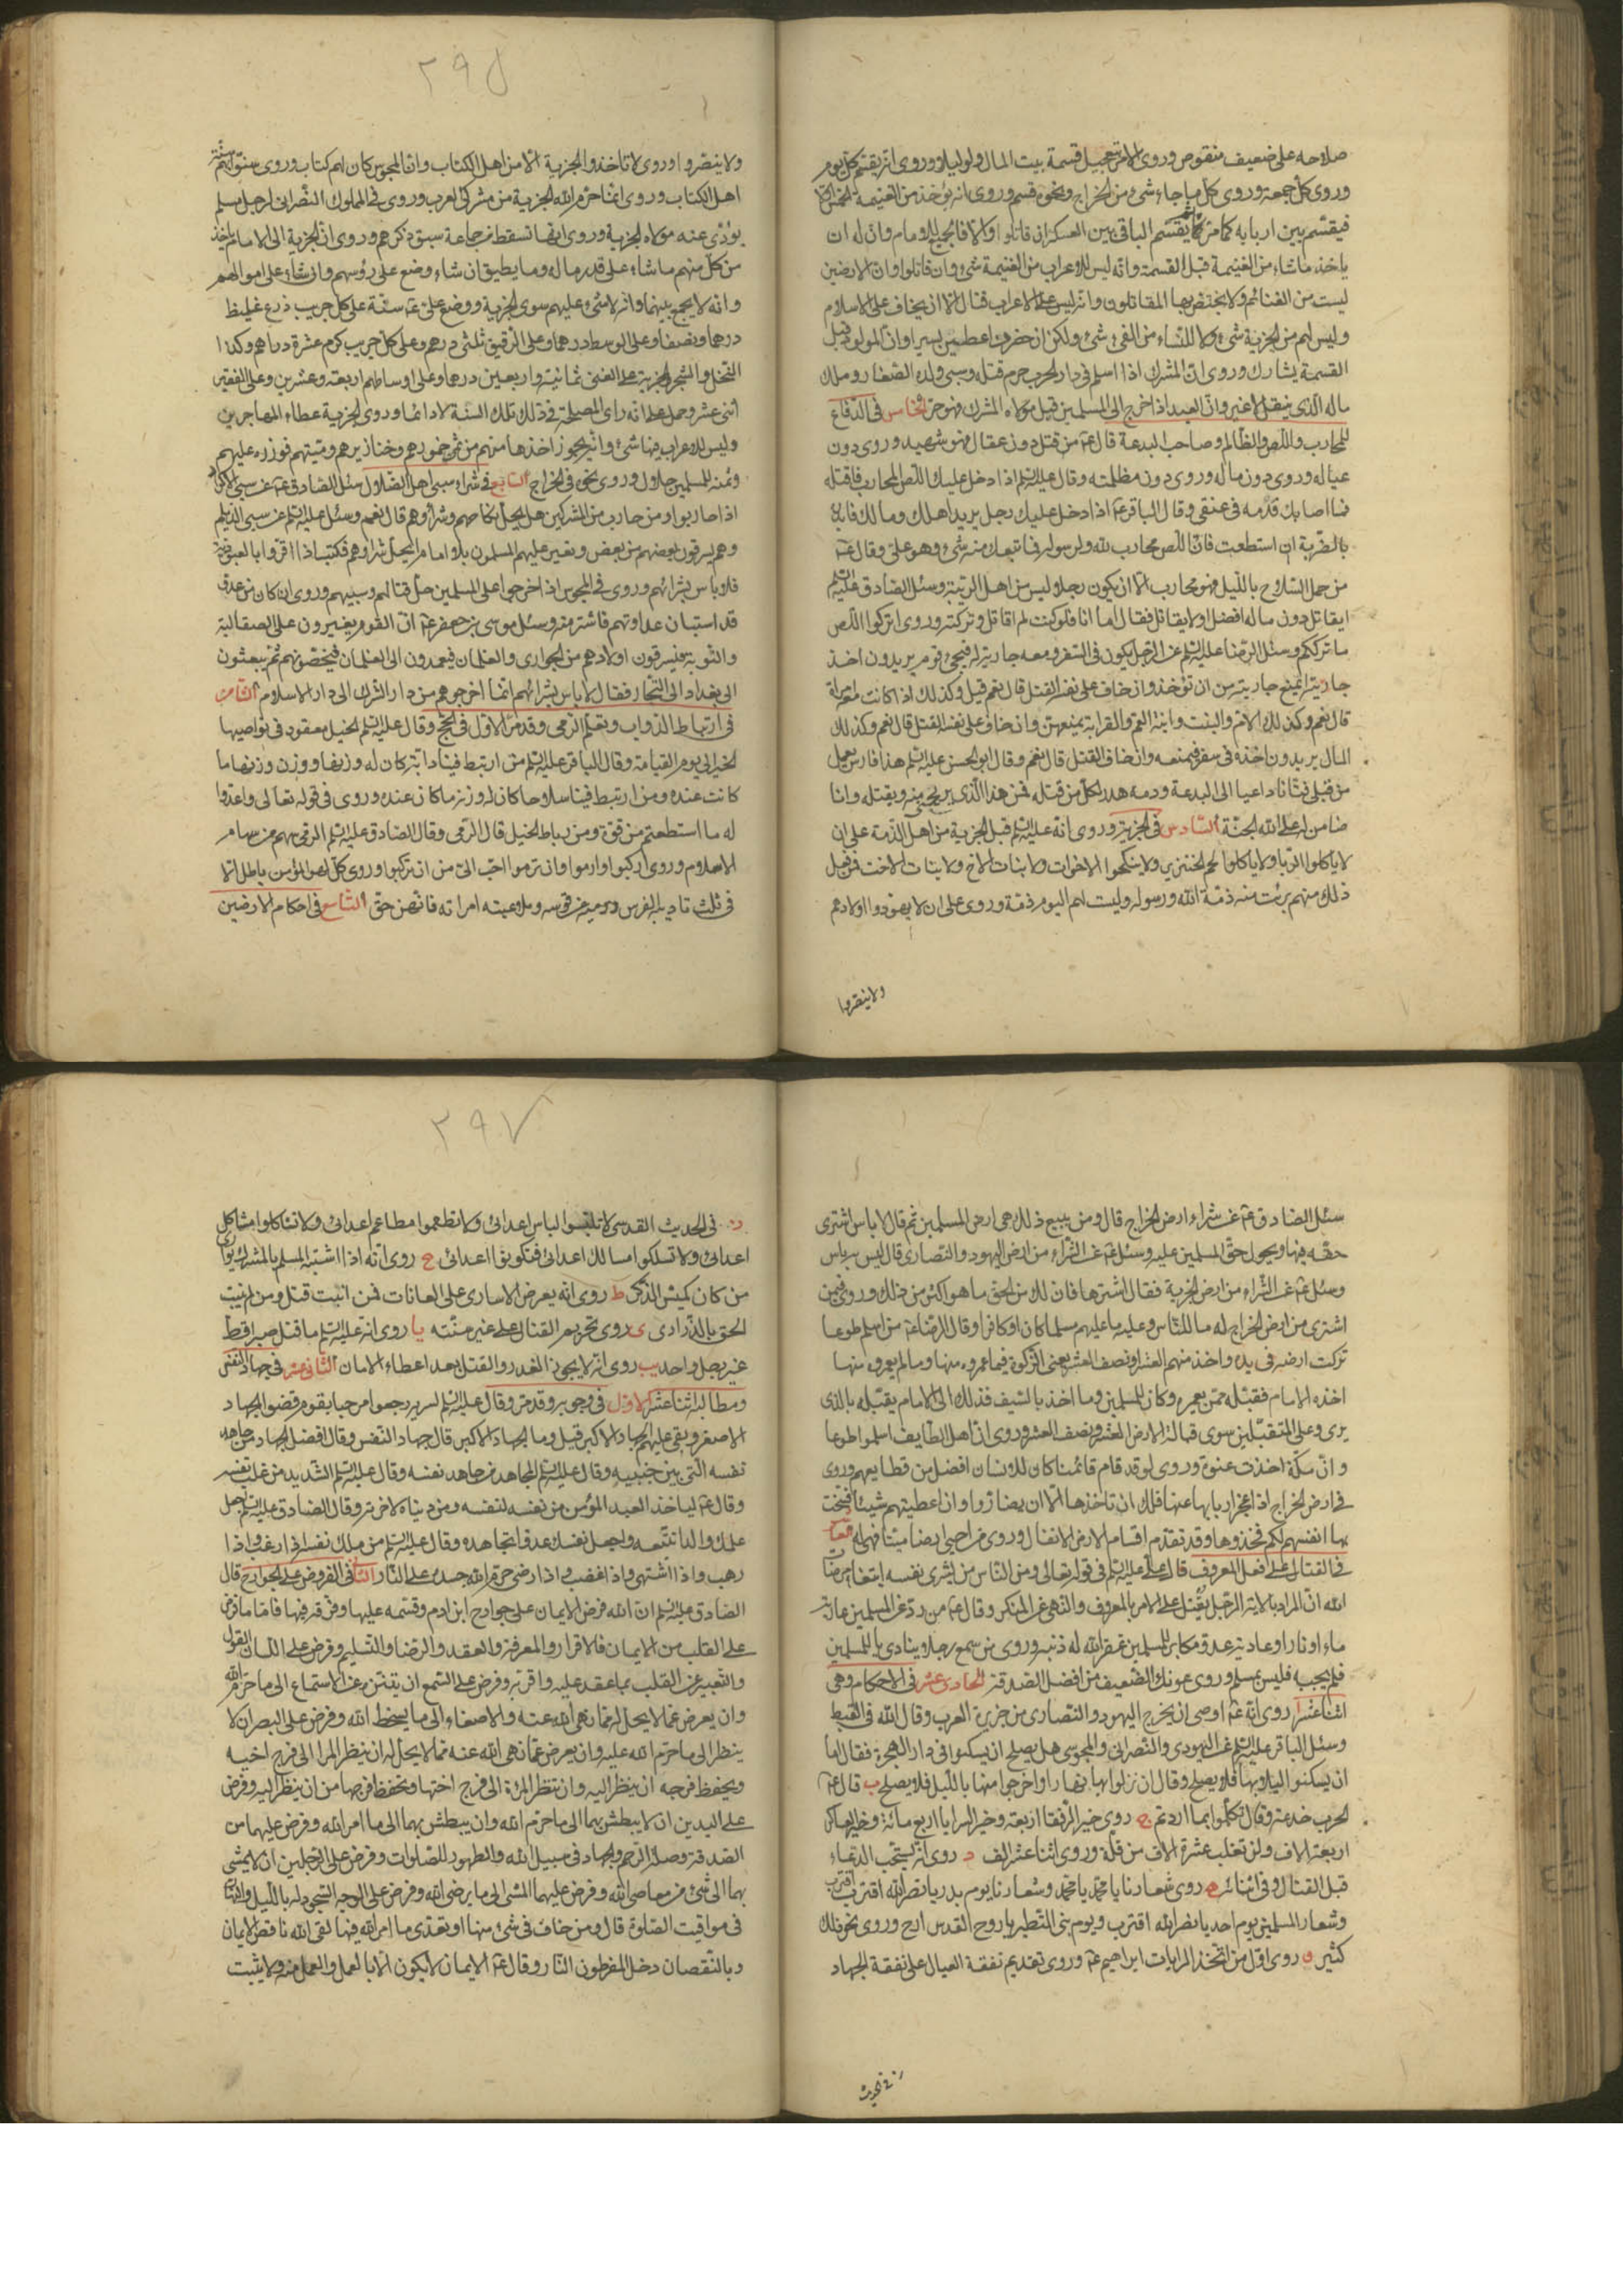 صلاحه على ضعيف منقوص وروى الامر بتعجيل قسمة بيت المال ولو ليلا وروى انه يقسم كل يوم
وروى كل جمعة وروى كل ما جاء شئ من الخراج ونحوه قسم وروى انه يؤخذ من الغنيمة الخمس
فيقسم بين اربابه كما مر ثم يقسم الباقى بين العسكر ان قاتلوا والا فالجميع للامام وان له ان
ياخذ ما شاء من الغنيمة قبل القسمة وانه ليس للاعراب من الغنيمة شئ وان قاتلوا وان الارضين
ليست من الغنائم ولا يختص بها المقاتلون وانه ليس على الاعراب قتال الا ان يخاف على الاسلام
وليس لهم من الجزية شئ ولا للنساء من الفئ شئ ولكن ان حضرن اعطين يسيرا وان المولود قبل
القسمة يشارك وروى ان المشرك اذا اسلم فى دار الحرب حرم قتله وسبى ولده الصغار وملك
ماله الذى ينقل لا غير وان العبد اذا خرج الى المسلمين قبل مولاه المشرك فهو حر الخامس فى الدفاع
للمحارب واللص والظالم وصاحب البدعة قال ع من قتل دون عقال فهو شهيد وروى دون
عياله وروى دون ماله وروى دون مظلمته وقال عليه السلم اذا دخل عليك اللص المحارب فاقتله
فما اصابك فدمه فى عنقى وقال الباقر ع اذا دخل عليك رجل يريد اهلك ومالك فابدره
بالضربة ان استطعت فان اللص محارب لله ولرسوله فما تبعك منه شئ وهو على وقال ع
من حمل السلاح بالليل فهو محارب الا ان يكون رجلا ليس من اهل الريبة وسئل الصادق عليه السلم
ايقاتل دون ماله افضل او لا يقاتل فقال اما انا فلو كنت لم اقاتل وتركته وروى اتركوا اللص
ما ترككم وسئل الرضا عليه السلم عن الرجل يكون فى السفر ومعه جارية له فيجئ قوم يريدون اخذ
جاريته ايمنع جاريته من ان تؤخذ وان خاف على نفسه القتل قال نعم قيل وكذلك اذا كانت معه امراة
قال نعم وكذلك الام والبنت وابنة العم والقرابة يمنعهن وان خاف على نفسه القتل قال نعم وكذلك
المال يريدون اخذه فى سفر فيمنعه وان خاف القتل قال نعم وقال ابو الحسن عليه السلم هذا فارس يعمل
من قبلى فتانا داعيا الى البدعة ودمه هدر لكل من قتله فمن هذا الذى يريحنى منه ويقتله وانا
ضامن له على الله الجنة السادس فى الجزية وروى انه عليه السلم قبل الجزية من اهل الذمة على ان
لا ياكلوا الربا ولا ياكلوا لحم الخنزير ولا ينكحوا الاخوات ولا بنات الاخ ولا بنات الاخت فمن فعل
ذلك منهم برئت منه ذمة الله ورسوله وليست لهم اليوم ذمة وروى على ان لا يهودوا اولادهم
ولا ينصروا
٢٩٥
ولا ينصروا وروى لا تاخذوا الجزية الا من اهل الكتاب وان المجوس كان لهم كتاب وروى سنوا بهم سنة
اهل الكتاب وروى انما حرم الله الجزية من مشركى العرب وروى فى المملوك النصرانى لرجل مسلم
يؤدى عنه مولاه الجزية وروى انها تسقط عن جماعة سبق ذكرهم وروى ان الجزية الى الامام ياخذ
من كل منهم ما شاء على قدر ماله وما يطيق ان شاء وضع على رؤسهم وان شاء على اموالهم
وانه لا يجمع بينهما وانه لا شئ عليهم سوى الجزية ووضع على ع ستة على كل جريب زرع غليظ
درهما ونصفا وعلى الوسط درهما وعلى الرقيق ثلثى درهم وعلى كل جريب كرم عشرة دراهم وكذا
النخل والشجر والجزية على الغنى ثمانية واربعين درهما وعلى اوساطهم اربعة وعشرين وعلى الفقير
اثنى عشر وحمل على انه راى المصلحة فى ذلك تلك السنة لا دائما وروى الجزية عطاء المهاجرين
وليس للاعراب فيها شئ وانه يجوز اخذها منهم من ثمن خمورهم وخنازيرهم وميتتهم فوزره عليهم
وثمنه للمسلمين حلال وروى نحوه فى الخراج السابع فى شراء سبى اهل الضلال سئل الصادق ع عن سبى الاكراد
اذا حاربوا ومن حارب من المشركين هل يحل نكاحهم وشراؤهم قال نعم وسئل عليه السلم عن سبى الديلم
وهم يسرقون بعضهم من بعض ويغير عليهم المسلمون بلا امام ايحل شراؤهم فكتب اذا اقروا بالعبودية
فلا باس بشرائهم وروى فى المجوس اذا خرجوا على المسلمين حل قتالهم وسبيهم وروى ان كان من عدو
قد استبان عداوتهم فاشتر منه وسئل موسى بن جعفر ع ان القوم يغيرون على الصقالبة
والنوبة فيسرقون اولادهم من الجوارى والغلمان فيعمدون الى الغلمان فيخصونهم ثم يبعثون
الى بغداد الى التجار فقال لا باس بشرائهم انما اخرجوهم من دار الشرك الى دار الاسلام الثامن
فى ارتباط الدواب وتعلم الرمى وقد مر الاول فى الحج وقال عليه السلم الخيل معقود فى نواصيها
الخير الى يوم القيامة وقال الباقر عليه السلم من ارتبط فينا دابة كان له وزنها ووزن وزنها ما
كانت عنده ومن ارتبط فينا سلاحا كان له وزنه ما كان عنده وروى فى قوله تعالى واعدوا
لهم ما استطعتم من قوة ومن رباط الخيل قال الرمى وقال الصادق عليه السلم الرمى سهم من سهام
الاسلام وروى اركبوا وارموا وان ترموا احب الى من ان تركبوا وروى كل لهو المؤمن باطل الا
فى ثلث تاديبه الفرس ورميه عن قوسه وملاعبته امراته فانهن حق التاسع فى احكام الارضين
سئل الصادق ع عن شراء ارض الخراج قال ومن يبيع ذلك هى ارض المسلمين ثم قال لا باس اشترى
حقه فيها ويحول حق المسلمين عليه وسئل ع عن الشراء من ارض اليهود والنصارى قال ليس به باس
وسئل ع عن الشراء من ارض الجزية فقال اشترها فان لك من الحق ما هو اكثر من ذلك وروى فيمن
اشترى من ارض الخراج له ما للناس وعليه ما عليهم مسلما كان او كافرا وقال الرضا ع من اسلم طوعا
تركت ارضه فى يده واخذ منهم العشر ونصف العشر يعنى الزكوة فيما عمروه منها وما لم يعمروه منها
اخذه الامام فقبله ممن يعمره وكان للمسلمين وما اخذ بالسيف فذلك الى الامام يقبله بالذى
يرى وعلى المتقبلين سوى قبالة الارض العشر ونصف العشر وروى ان اهل الطايف اسلموا طوعا
وان مكة اخذت عنوة وروى لو قد قام قائمنا كان للانسان افضل من قطايعهم وروى
فى ارض الخراج اذا عجز اربابها عنها فلك ان تاخذها الا ان يضاروا وان اعطيتهم شيئا فسخت
بها انفسهم لكم فخذوها وقد تقدم اقسام الارض الانفال وروى من احيى ارضا ميتا فهى له العاشر
فى القتال على فعل المعروف قال على عليه السلم فى قوله تعالى ومن الناس من يشرى نفسه ابتغاء مرضات
الله ان المراد بالاية الرجل يقتل على الامر بالمعروف والنهى عن المنكر وقال ع من رد عن المسلمين عادية
ماء او نار او عادية عدو مكابر للمسلمين غفر الله له ذنبه وروى من سمع رجلا ينادى يا للمسلمين
فلم يجبه فليس بمسلم وروى عونك الضعيف من افضل الصدقة الحادى عشر فى الاحكام وهى
اثنا عشر ا روى انه ع اوصى ان يخرج اليهود والنصارى من جزيرة العرب وقال الله فى القبط
وسئل الباقر عليه السلم عن اليهودى والنصرانى والمجوسى هل يصلح ان يسكنوا فى دار الهجرة فقال اما
ان يسكنوا ليلا بها فلا يصلح وقال ان نزلوا بها نهارا واخرجوا منها بالليل فلا يصلح ب قال ع
الحرب خدعة وقال تكلموا بما اردتم ج روى خير الرفقاء اربعة وخير السرايا اربع مائة وخير العساكر
اربعة الاف ولن تغلب عشرة الاف من قلة وروى اثنا عشر الف د روى انه يستحب الدعاء
قبل القتال وفى اثنائه ه روى شعارنا يا محمد يا محمد وشعارنا يوم بدر يا نصر الله اقترب اقترب
وشعار المسلمين يوم احد يا نصر الله اقترب ويوم بنى النضير يا روح القدس ارح وروى نحو ذلك
كثير و روى اول من اتخذ الرايات ابراهيم ع وروى تقديم نفقة العيال على نفقة الجهاد
ز فى الحديث
٢٩٧
ز فى الحديث القدسى لا تلبسوا لباس اعدائى ولا تطعموا مطاعم اعدائى ولا تشاكلوا مشاكل
اعدائى ولا تسلكوا مسالك اعدائى فتكونوا اعدائى ح روى انه اذا اشتبه المسلم بالمشرك يوارى
من كان كميش الذكر ط روى انه يعرض الاسارى على العانات فمن انبت قتل ومن لم ينبت
الحق بالذرارى ى روى تحريم القتال على غير سنة يا روى انه عليه السلم ما قتل صبرا قط
غير رجل واحد يب روى انه لا يجوز الغدر والقتل بعد اعطاء الامان الثانى عشر فى جهاد النفس
ومطالبه اثنا عشر الاول فى وجوبه وقد مر وقال عليه السلم لسرية رجعوا مرحبا بقوم قضوا الجهاد
الاصغر وبقى عليهم الجهاد الاكبر قيل وما الجهاد الاكبر قال جهاد النفس وقال افضل الجهاد من جاهد
نفسه التى بين جنبيه وقال عليه السلم المجاهد من جاهد نفسه وقال عليه السلم الشديد من غلب نفسه
وقال ع ليأخذ العبد المؤمن من نفسه لنفسه ومن دنياه لاخرته وقال الصادق عليه السلم اجعل
علمك والدا تتبعه واجعل نفسك عدوا تجاهده وقال عليه السلم من ملك نفسه اذا رغب واذا
رهب واذا اشتهى واذا غضب واذا رضى حرم الله جسده على النار الثانى فى الفروض على الجوارح قال
الصادق عليه السلم ان الله فرض الايمان على جوارح ابن ادم وقسمه عليها وفرقه فيها فاما ما فرض
على القلب من الايمان فالاقرار والمعرفة والعقد والرضا والتسليم وفرض على اللسان القول
والتعبير عن القلب بما عقد عليه واقر به وفرض على السمع ان يتنزه عن الاستماع الى ما حرم الله
وان يعرض عما لا يحل له مما نهى الله عنه والاصغاء الى ما يسخط الله وفرض على البصر ان لا
ينظر الى ما حرم الله عليه وان يعرض عما نهى الله عنه مما لا يحل له ان ينظر المرا الى فرج اخيه
ويحفظ فرجه ان ينظر اليه وان تنظر المرئة الى فرج اختها وتحفظ فرجها من ان ينظر اليه وفرض
على اليدين ان لا يبطش بهما الى ما حرم الله وان يبطش بهما الى ما امر الله وفرض عليهما من
الصدقة وصلة الرحم والجهاد فى سبيل الله والطهور للصلوات وفرض على الرجلين ان لا يمشى
بهما الى شئ من معاصى الله وفرض عليهما المشى الى ما يرضى الله وفرض على الوجه السجود له بالليل والنهار
فى مواقيت الصلوة قال ومن خان فى شئ منها او تعدى ما امر الله فيها لقى الله ناقص الايمان
وبالنقصان دخل المفرطون النار وقال ع الايمان لا يكون الا بالعمل والعمل منه ولا يثبت